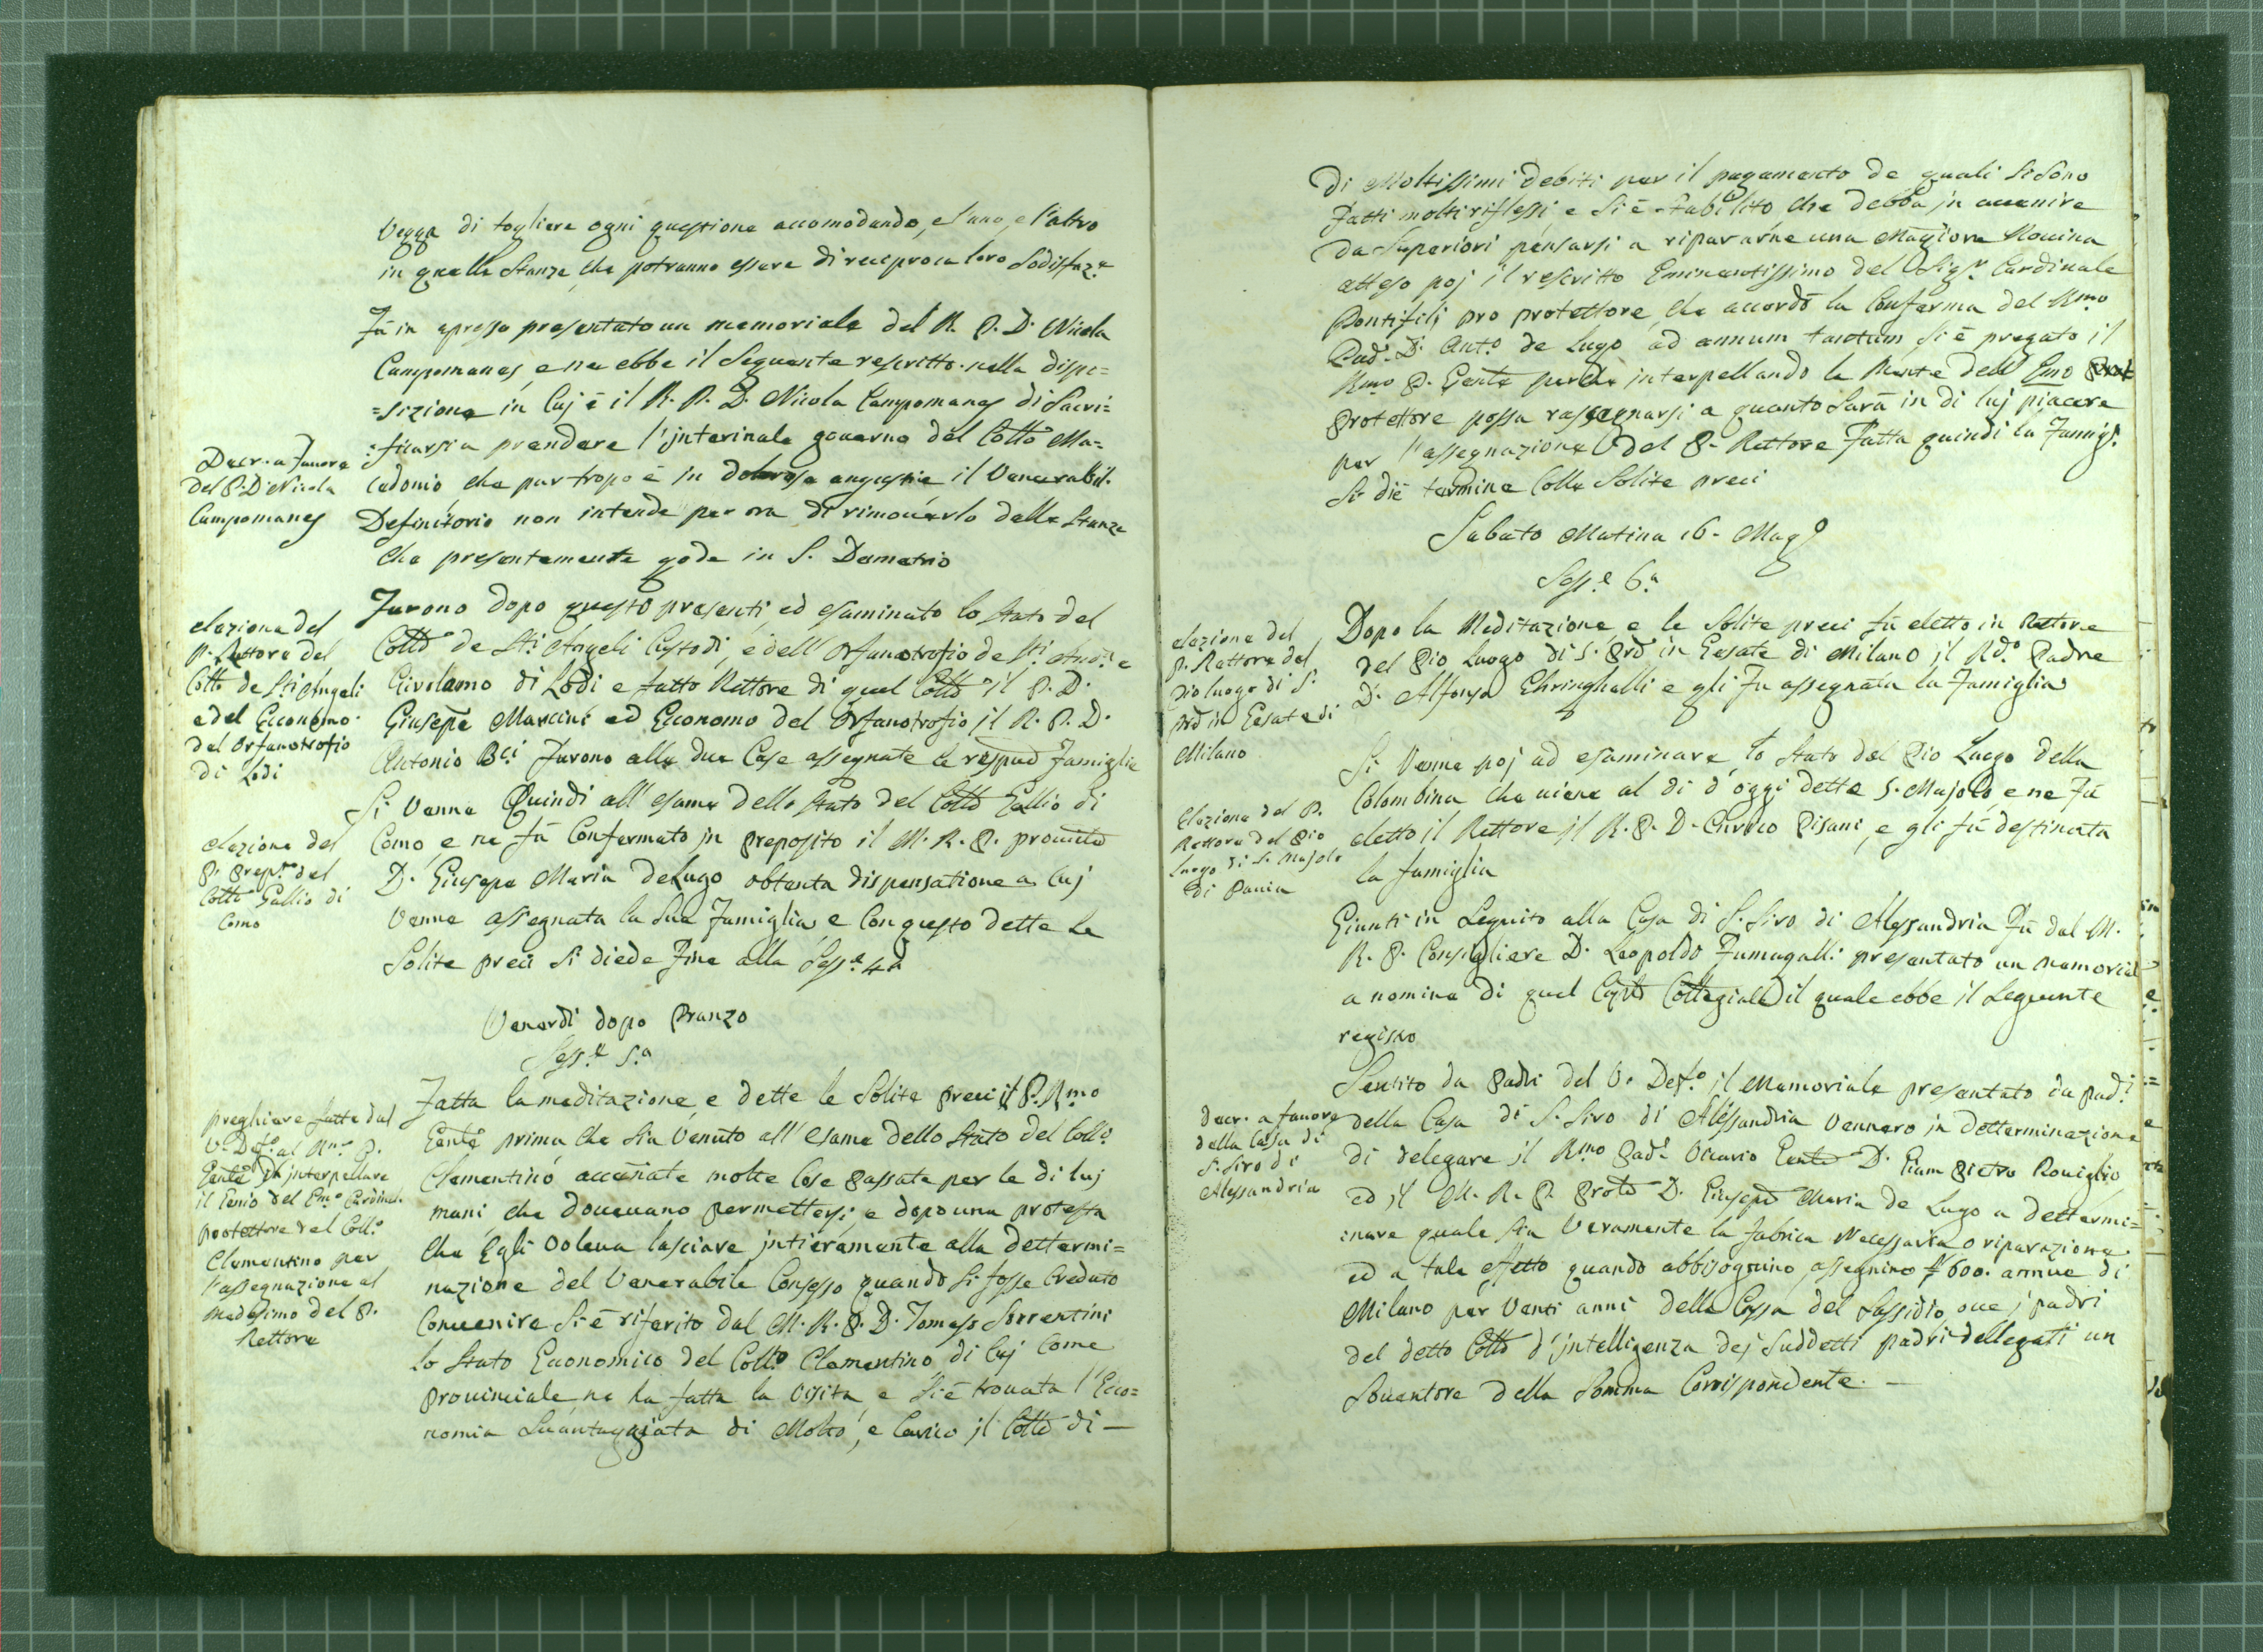 Vegga di togliere ogni questione accomodando, e l'uno, e l'altro
in quelle Stanze, che potranno essere di reciproca loro Sodisfaz.e
Fù in apresso presentato un memoriale del R. P. D. Nicola
Campomanes, e ne ebbe il Seguente rescritto. nella dispo=
=sizione in Cuj è il R. P. D. Nicola Campomanes di Sacri=
=ficarsi a prendere l'interinale governo del Collo Ma=
cedonio, che pur tropo è in dolorose angustie il Venerabil.
Definitorio non intende per ora di rimouerlo dalle Stanze
che presentemente gode in S. Demetrio
Decr. a fauore
del P. D. Nicola
Campomanes
Furono dopo questo presenti, ed esaminato lo Stato del
Collo de Sti. Angeli Custodi, e dell' Orfanotrofio de Sti. And.a e
Girolamo di Lodi e fatto Rettore di quel Collo il P. D.
Giusepe Mancini ed Economo del Orfanotrofio il R. P. D.
Antonio Bci Furono alle due Case assegnate le Famiglie
elezione del
P. Rettore del
Collo de Sti Angeli
e del Economo
del Orfanotrofio
di Lodi
Si Venne Quindi all' esame dello Stato del Collo Gallio di
Como, e ne fù Confermato in Preposito il M. R. P.
D. Giusepe Maria DeLugo obtenta dispensatione a Cuj
Venne assegnata la Sua Famiglia, e Con questo dette le
Solite preci Si diede Fine alla Sess.e 4.a
elezione del
P. Prep.to del
Collo Gallio di
Como
Venerdì dopo Pranzo
Sess.e 5.a
Fatta la meditazione, e dette le Solite preci il P. Rmo
Genle prima che Sia Venuto all' esame dello Stato del Collo.
Clementino accennate molte Cose Passate per le di luj
mani, che doueuano permettersi, e dopo una protesta
che Egli Voleua lasciare intieramente alla dettermi=
nazione del Venerabile Consesso quando Si fosse Creduto
Conuenire Si è riferito dal M. R. P. D. Tomaso Sorrentini
lo Stato Economico del Coll.o Clementino di Cuj Come
Prouinciale ne ha fatta la Visita, e Si è trouata l'Eco=
nomia Suantaggiata di Molto, e Carico il Collo di —
preghiere fatte dal
V. Def.o al Rmo P.
Genle di interpellare
il Genio del Em.o Cardinal.
protettore del Coll.o
Clementino per
l'assegnazione al
Medesimo del P.
Rettore
di Moltissimi Debiti per il pagamento de quali Si Sono
Fatti molti riflessi e Si è Stabilito che debba in auuenire
da Superiori pensarsi a ripararne una Magiore Rouina
atteso poj il rescritto Eminentissimo del Sig.r Cardinale
Pamfilj pro protettore, che accordò la Conferma del Rmo
Pad. D. Ant.o de Lugo ad annum tantum Si è pregato il
Rmo P. Genle perche interpellando la Mente dell' Emo Prot
Protettore possa rassegnarsi a quanto Sarà in di luj piacere
per l'assegnazione del P. Rettore Fatta quindi la Famigl.
Si diè termine Colle Solite preci
Sabato Matina 16. Mag.o
Sess.e 6.a
Dopo la Meditazione e le Solite preci fù eletto in Rettore
del Pio Luogo di S. Pro in Gesate di Milano il Rd.o Padre
D. Alfonso Ghringhelli e gli Fu assegnata la Famiglia
elezione del
P. Rettore del
Pio luogo di S.
Pro in Gesate di
Milano
Si Venne poj ad esaminare lo Stato del Pio Luogo della
Colombina che viene al dì d'oggi dette S. Majolo, e ne Fù
eletto il Rettore il R. P. D. Enrico Pisani, e gli fù destinata
la famiglia
Elezione del P.
Rettore del Pio
luogo di S. Majolo
di Pauia
Giunti in Seguito alla Casa di S. Siro di Alessandria Fù dal M.
R. P. Consigliere D. Leopoldo Fumagalli presentato un memorial
a nomine di quel Collegiale il quale ebbe il Seguente
regisro
Sentito da Padri del V. Def.o il Memoriale presentato da pad.i
della Casa di S. Siro di Alessandria Vennero in Detterminazione
di delegare il Rmo Pad. Vicario Genle D. Giam Pietro Rouiglio
ed il M. R. P. D. Giusepe Maria de Lugo a dettermi=
inare quale Sia Veramente la fabrica Necessaria o riparazione
ed a tale effetto quando abbisognino, assegnino 600. annue di
Milano per Venti anni della Cassa del Sussidio, oue i padri
del detto Collo d'intelligenza dej Suddetti padri dellegati un
Souentore della Somma Corrispondente. —
Decr. a fauore
della Casa di
S. Siro di
Alessandria